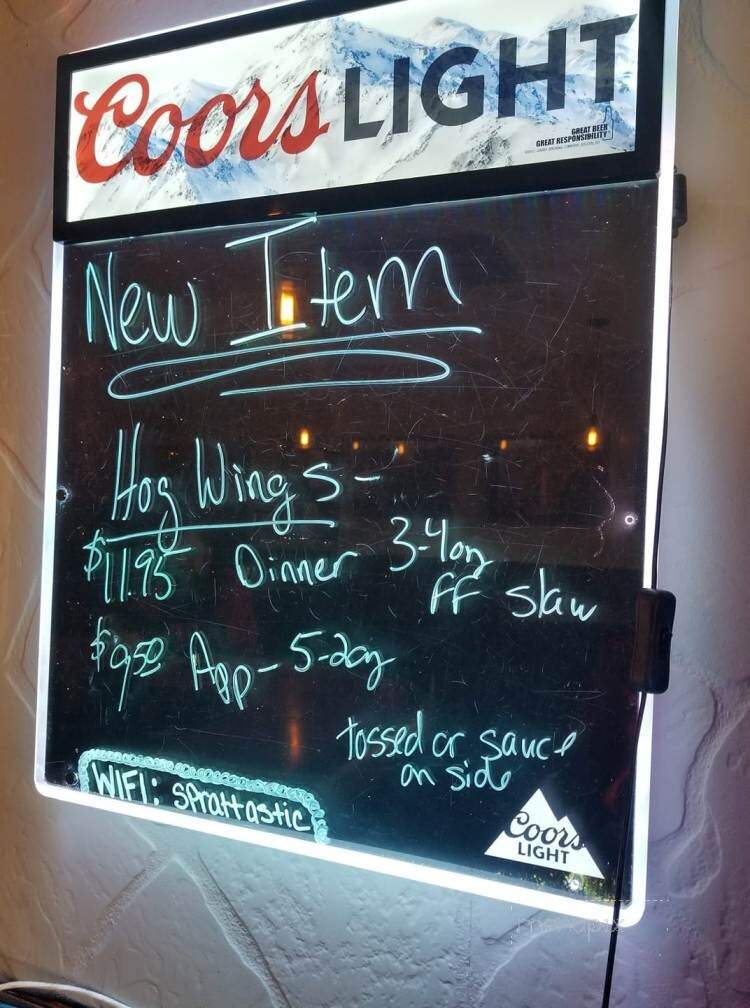 Coors LIGHT
GREAT BEER
GREAT RESPONSIBILITY
New Item
Hog Wings -
$11.95 Dinner 3-4oz
FF slaw
$9.50 App - 5-2oz
tossed or sauce
on side
WIFI: sprattastic
Coors
LIGHT